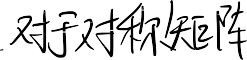 对于对称矩阵